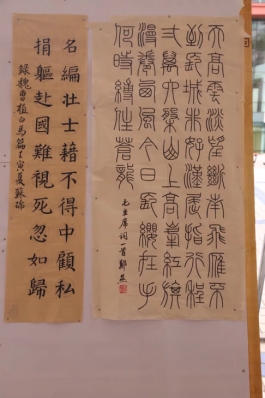 天高雲淡望斷南飛雁不
到長城非好漢屈指行程
弍萬六盤山上高峯紅旗
漫卷西風今日長纓在手
何時縛住蒼龍
毛主席詞一首
名編壯士藉不得中顧私
捐軀赴國難視死忽如歸
錄魏曹植白馬篇壬寅夏蘇瑞